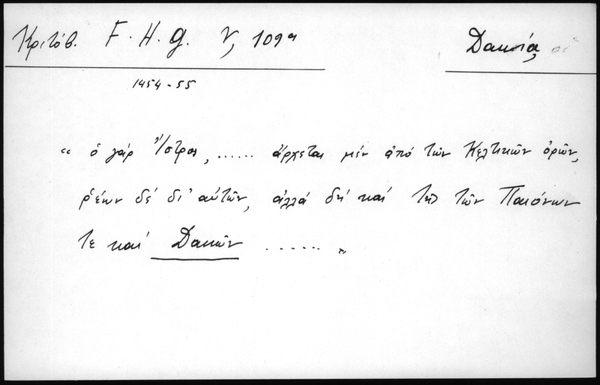 Κριτόβ. F. H. g. V, 109α
Δακία,
1454-55
“ ὁ γάρ Ἴστρος, ...... ἄρχεται μέν ἀπό τῶν Κελτικῶν ὀρῶν,
ῥέων δέ δι' αὐτῶν, ἀλλά δή καί τῶν Παιόνων
τε καί Δακῶν ...... „